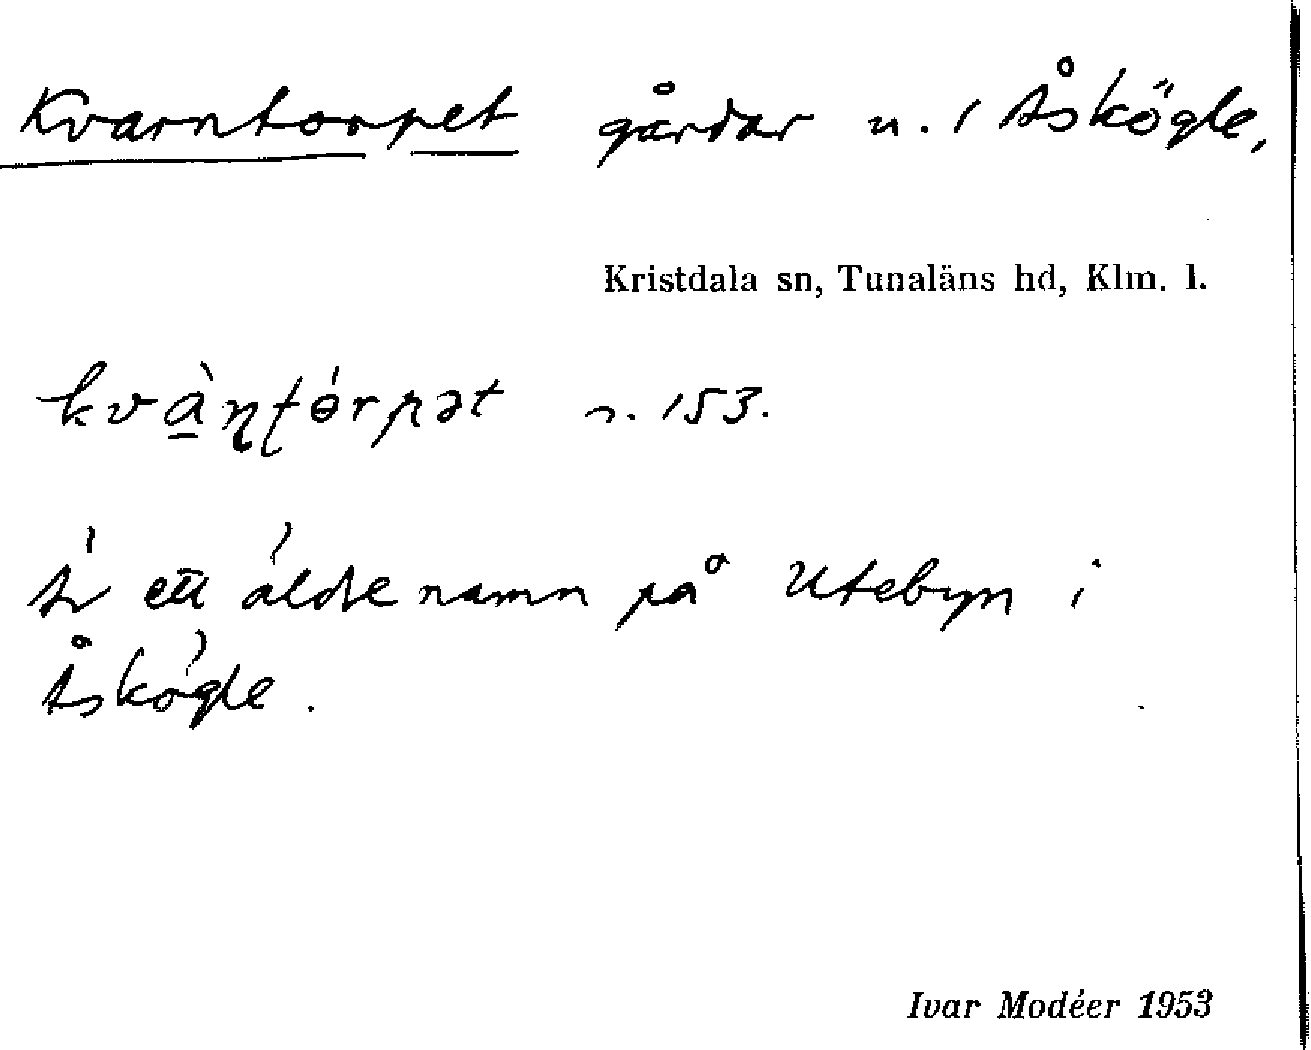 Kvarntorpet gårdar n. 1 Åskögle,
Kristdala sn, Tunaläns hd, Klm. l.
kvàɳʈɵ́rpət n. 153.
Är ett äldre namn på Utebyn i
Åskögle.
Ivar Modéer 1953